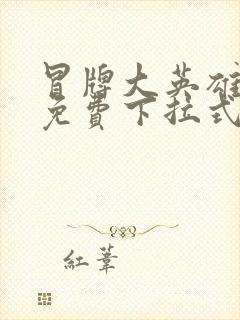 冒牌大英雄
免費下拉式
紅葦